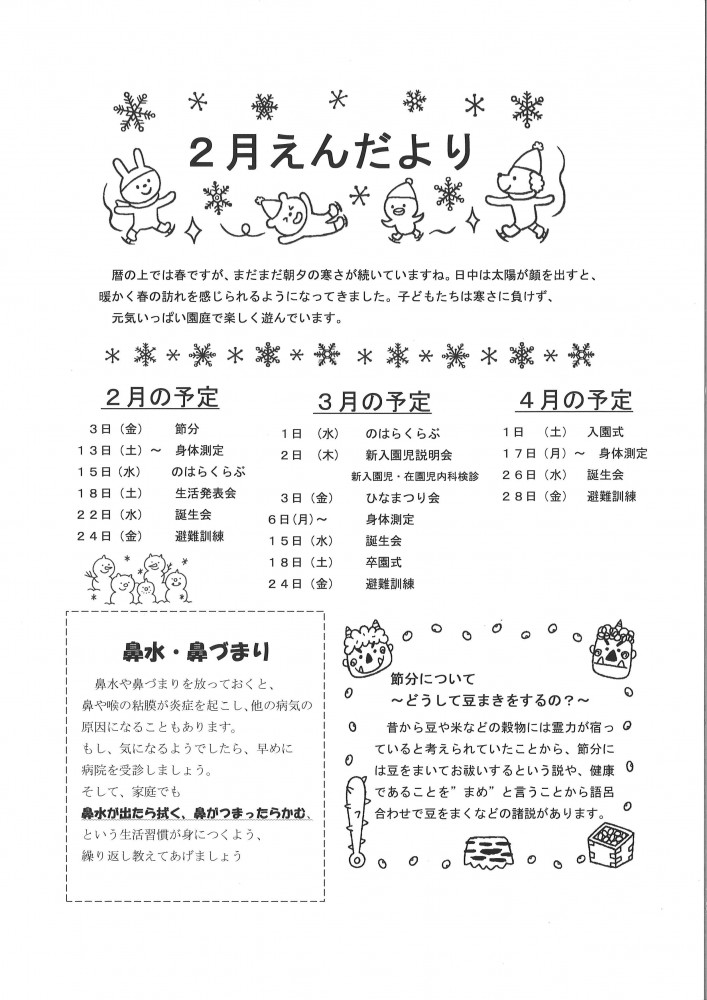 ２月えんだより
暦の上では春ですが、まだまだ朝夕の寒さが続いていますね。日中は太陽が顔を出すと、
暖かく春の訪れを感じられるようになってきました。子どもたちは寒さに負けず、
元気いっぱい園庭で楽しく遊んでいます。
２月の予定
３日（金） 節分
１３日（土）～ 身体測定
１５日（水） のはらくらぶ
１８日（土） 生活発表会
２２日（水） 誕生会
２４日（金） 避難訓練
３月の予定
１日（水） のはらくらぶ
２日（木） 新入園児説明会
新入園児・在園児内科検診
３日（金） ひなまつり会
６日（月）～ 身体測定
１５日（水） 誕生会
１８日（土） 卒園式
２４日（金） 避難訓練
４月の予定
１日（土） 入園式
１７日（月）～ 身体測定
２６日（水） 誕生会
２８日（金） 避難訓練
鼻水・鼻づまり
鼻水や鼻づまりを放っておくと、
鼻や喉の粘膜が炎症を起こし、他の病気の
原因になることもあります。
もし、気になるようでしたら、早めに
病院を受診しましょう。
そして、家庭でも
鼻水が出たら拭く、鼻がつまったらかむ、
という生活習慣が身につくよう、
繰り返し教えてあげましょう
節分について
～どうして豆まきをするの？～
昔から豆や米などの穀物には霊力が宿っ
ていると考えられていたことから、節分に
は豆をまいてお祓いするという説や、健康
であることを”まめ”と言うことから語呂
合わせで豆をまくなどの諸説があります。